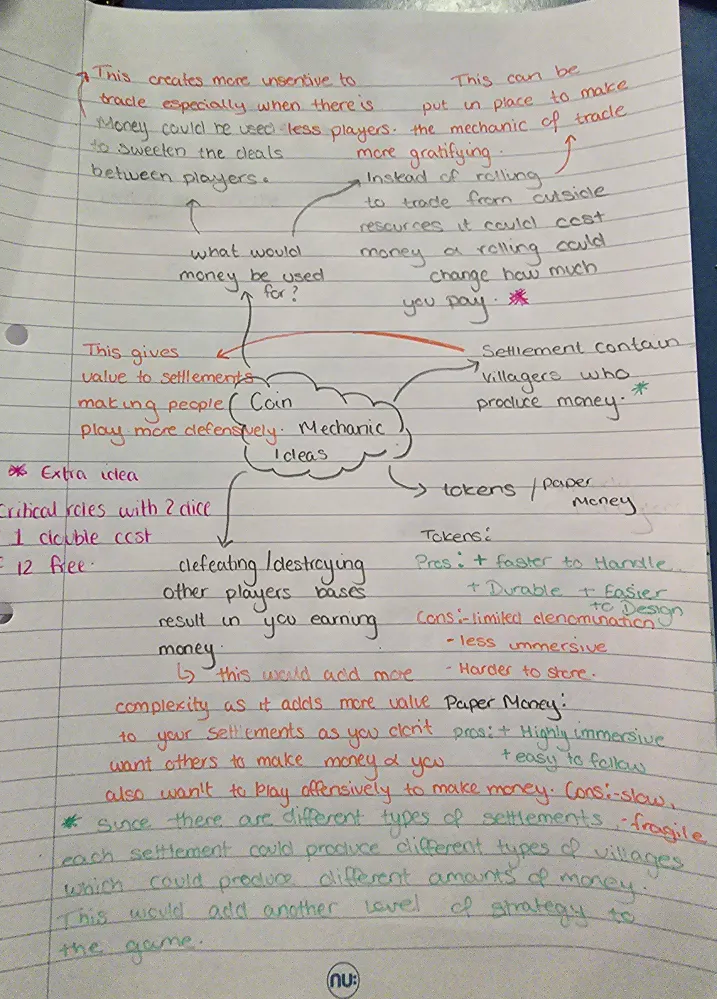 This creates more insentive to
trade especially when there is
less players.
Money could be used
to sweeten the deals
between players.
This can be
put in place to make
the mechanic of trade
more gratifying.
Instead of rolling
to trade from outside
resources it could cost
money & rolling could
change how much
you pay. *
what would
money be used
for?
This gives
value to settlements
making people
play more defensively.
Coin
Mechanic
Ideas
Settlement contain
villagers who
produce money. *
* Extra idea
Critical roles with 2 dice
1 double cost
12 free.
tokens / paper
money
defeating/destroying
other players bases
result in you earning
money.
↳ this would add more
complexity as it adds more value
to your settlements as you don't
want others to make money & you
also wan't to play offensively to make money.
Tokens:
Pros: + faster to Handle
+ Durable + Easier
to Design
Cons:- limited denomination
- less immersive
- Harder to store.
Paper Money:
pros: + Highly immersive
+ easy to follow
Cons:- slow,
- fragile
* since there are different types of settlements,
each settlement could produce different types of villages
which could produce different amounts of money.
This would add another level of strategy to
the game.
nu: